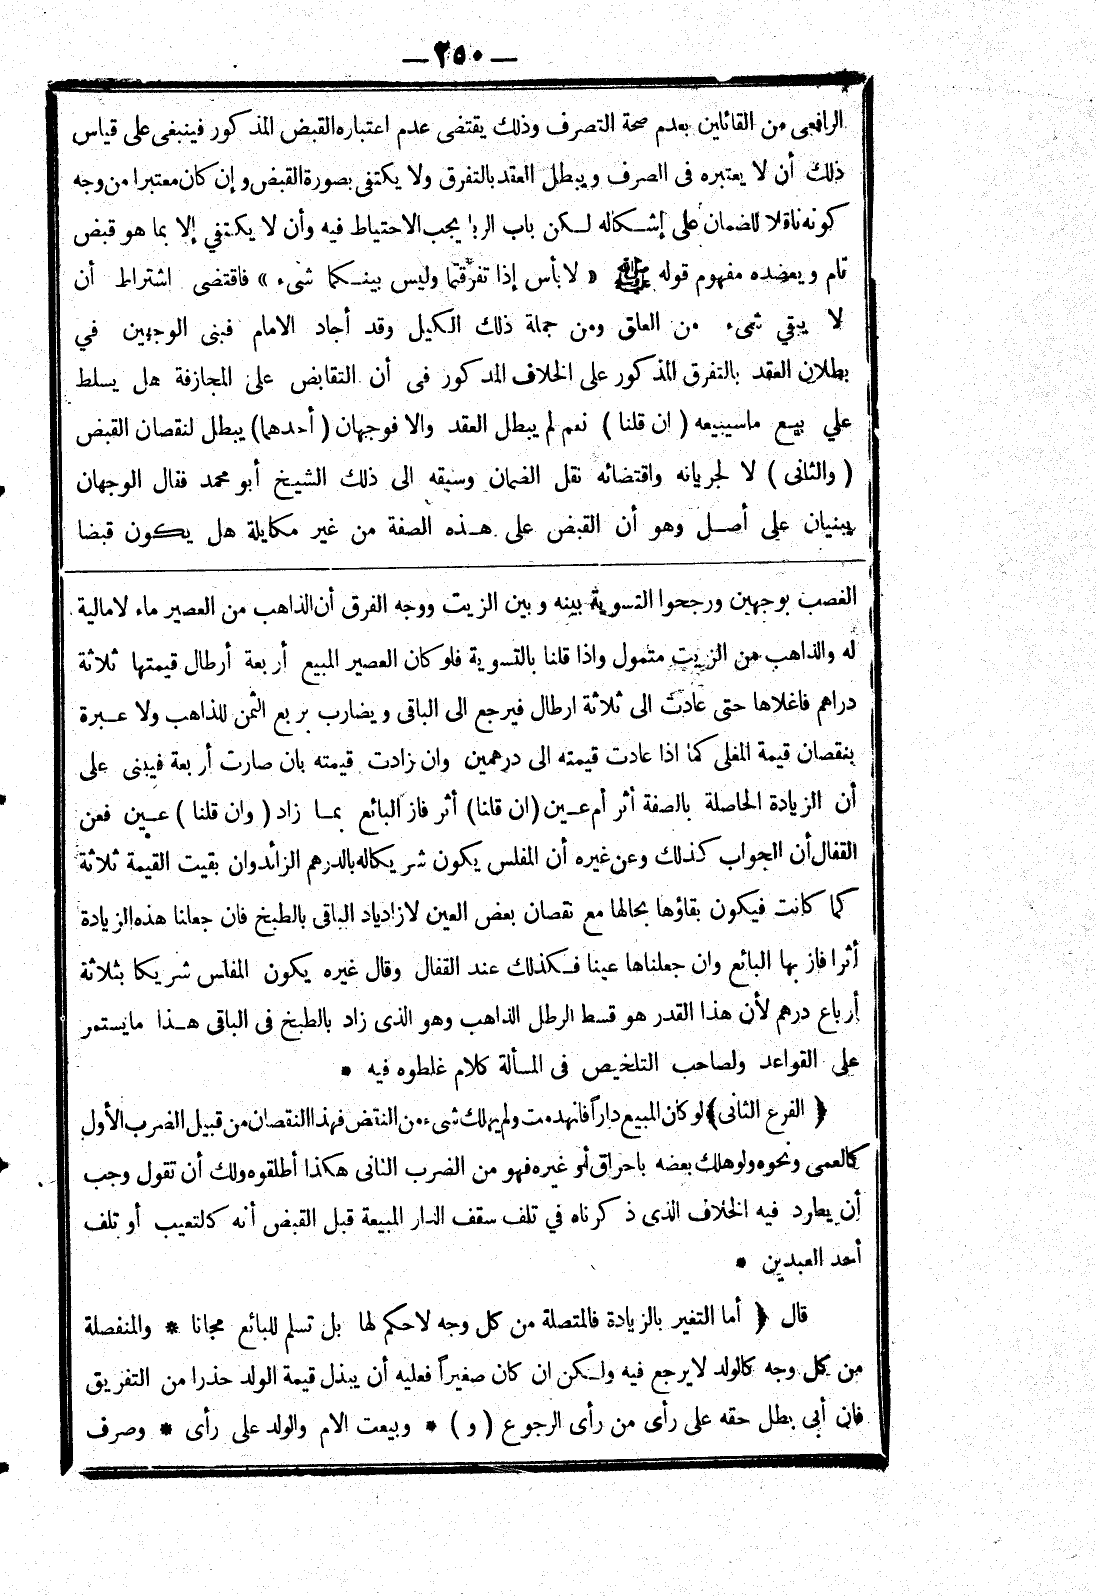 — ٢٥٠ —
الرافعى من القائلين بعدم صحة التصرف وذلك يقتضى عدم اعتباره القبض المذكور فينبغى على قياس
ذلك أن لا يعتبره فى الصرف ويبطل العقد بالتفرق ولا يكتفى بصورة القبض وإن كان معتبرا من وجه
كونه ناقلا للضمان على إشكاله لكن باب الربا يجب الاحتياط فيه وأن لا يكتفي إلا بما هو قبض
تام ويعضده مفهوم قوله ﷺ « لا بأس إذا تفرقتما وليس بينكما شىء » فاقتضى اشتراط أن
لا يبقي شىء من العلق ومن جملة ذلك الكيل وقد أجاد الامام فبنى الوجهين في
بطلان العقد بالتفرق المذكور على الخلاف المذكور فى أن التقابض على المجازفة هل يسلط
علي بيع ماسيبيعه ( ان قلنا ) نعم لم يبطل العقد والا فوجهان ( أحدهما ) يبطل لنقصان القبض
( والثانى ) لا لجريانه واقتضائه نقل الضمان وسبقه الى ذلك الشيخ أبو محمد فقال الوجهان
يبنيان على أصل وهو أن القبض على هذه الصفة من غير مكايلة هل يكون قبضا
الغصب بوجهين ورجحوا التسوية بينه وبين الزيت ووجه الفرق أن الذاهب من العصير ماء لا مالية
له والذاهب من الزيت متمول واذا قلنا بالتسوية فلو كان العصير المبيع أربعة أرطال قيمتها ثلاثة
دراهم فاغلاها حتى عادت الى ثلاثة ارطال فيرجع الى الباقى ويضارب بربع الثمن للذاهب ولا عبرة
بنقصان قيمة المغلى كما اذا عادت قيمته الى درهمين وان زادت قيمته بان صارت أربعة فيبنى على
أن الزيادة الحاصلة بالصفة أثر أم عين ( ان قلنا ) أثر فاز البائع بما زاد ( وان قلنا ) عين فعن
القفال أن الجواب كذلك وعن غيره أن المفلس يكون شريكا له بالدرهم الزائد وان بقيت القيمة ثلاثة
كما كانت فيكون بقاؤها بحالها مع نقصان بعض العين لازدياد الباقى بالطبخ فان جعلنا هذه الزيادة
أثرا فاز بها البائع وان جعلناها عينا فكذلك عند القفال وقال غيره يكون المفلس شريكا بثلاثة
أرباع درهم لأن هذا القدر هو قسط الرطل الذاهب وهو الذى زاد بالطبخ فى الباقى هذا مايستمر
على القواعد ولصاحب التلخيص فى المسألة كلام غلطوه فيه *
﴿ الفرع الثانى ﴾ لو كان المبيع داراً فانهدمت ولم يهلك شىء من النقض فهذا النقصان من قبيل الضرب الأول
كالعمى ونحوه ولو هلك بعضه باحراق أو غيره فهو من الضرب الثانى هكذا أطلقوه ولك أن تقول وجب
أن يطرد فيه الخلاف الذى ذكرناه في تلف سقف الدار المبيعة قبل القبض أنه كالتعيب أو تلف
أحد العبدين *
قال ﴿ أما التغير بالزيادة فالمتصلة من كل وجه لاحكم لها بل تسلم للبائع مجانا * والمنفصلة
من كل وجه كالولد لا يرجع فيه ولكن ان كان صغيراً فعليه أن يبذل قيمة الولد حذرا من التفريق
فان أبى بطل حقه على رأى من رأى الرجوع ( و ) * وبيعت الام والولد على رأى * وصرف